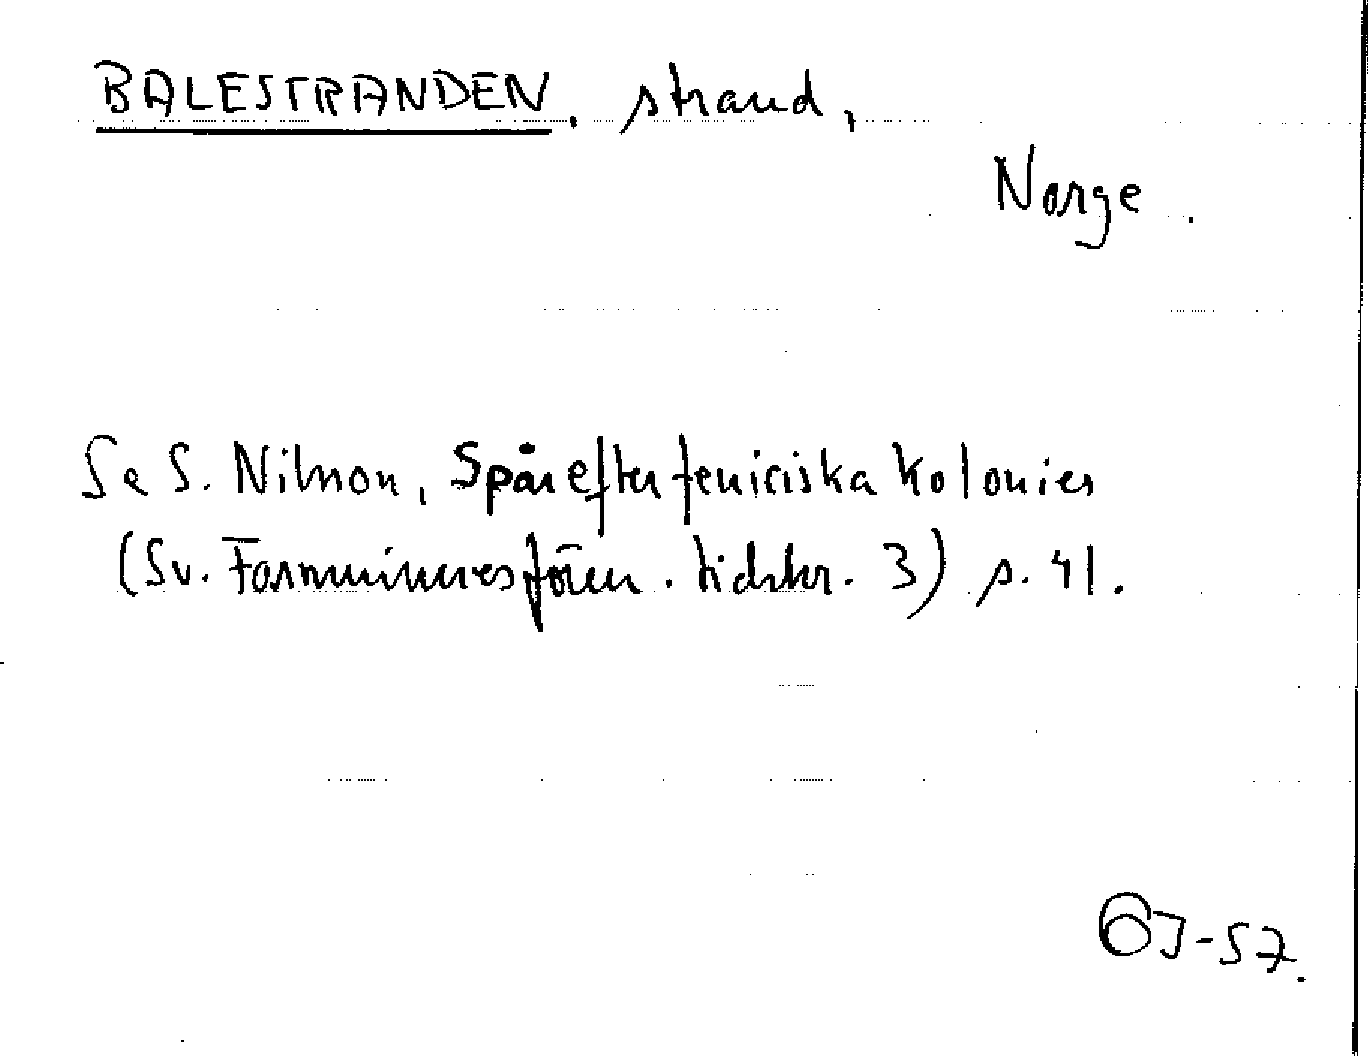 BALESTRANDEN, strand,
Norge.
Se S. Nilsson, Spår efter feniciska kolonier
(Sv. Fornminnesfören. tidskr. 3) s. 41.
GJ-57.